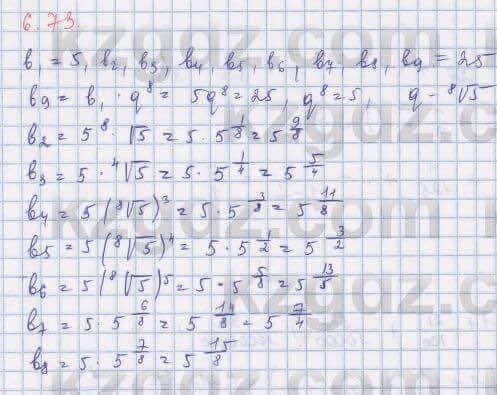 6.73.
b₁ = 5, b₂, b₃, b₄, b₅, b₆, b₇ b₈, b₉ = 25
b₉ = b₁ · q⁸ = 5q⁸ = 25, q⁸ = 5, q - ⁸√5
b₂ = 5 ⁸·√5 = 5 · 5^(1/8) = 5^(9/8)
b₃ = 5 · ⁴√5 = 5 · 5^(1/4) = 5^(5/4)
b₄ = 5 (⁸√5)³ = 5 · 5^(3/8) = 5^(11/8)
b₅ = 5 (⁸√5)⁴ = 5 · 5^(1/2) = 5^(3/2)
b₆ = 5 (⁸√5)⁵ = 5 · 5^(5/8) = 5^(13/8)
b₇ = 5 · 5^(6/8) = 5^(14/8) = 5^(7/4)
b₈ = 5 · 5^(7/8) = 5^(15/8)
kzgdz.com